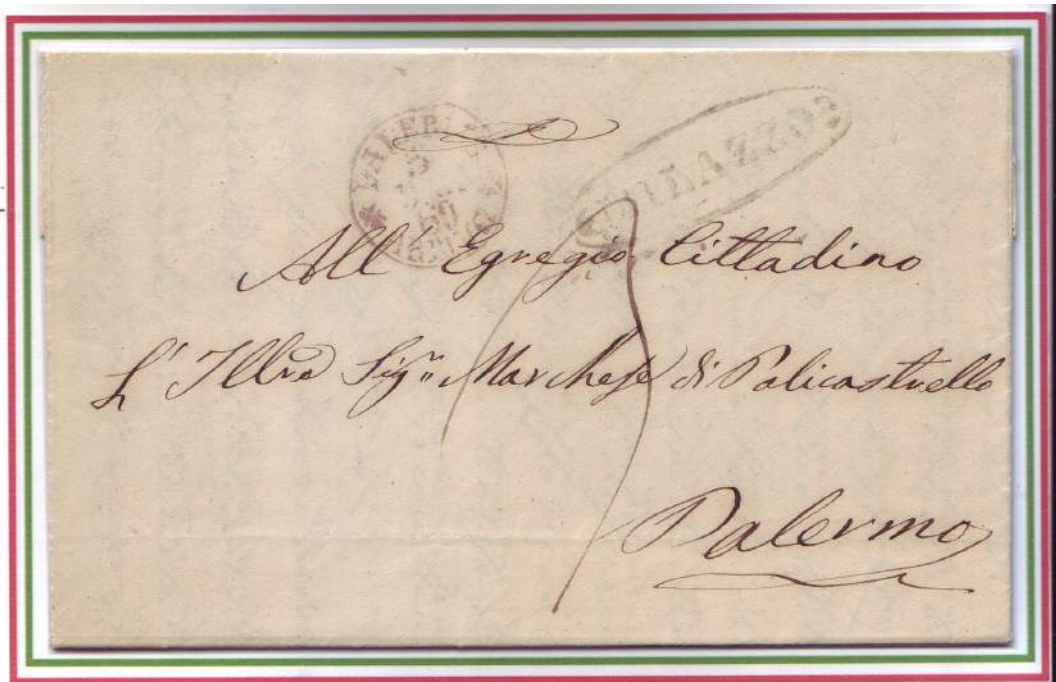 MILAZZO
All' Egregio Cittadino
L' Illmo Sigr Marchese di Policastrello
Palermo